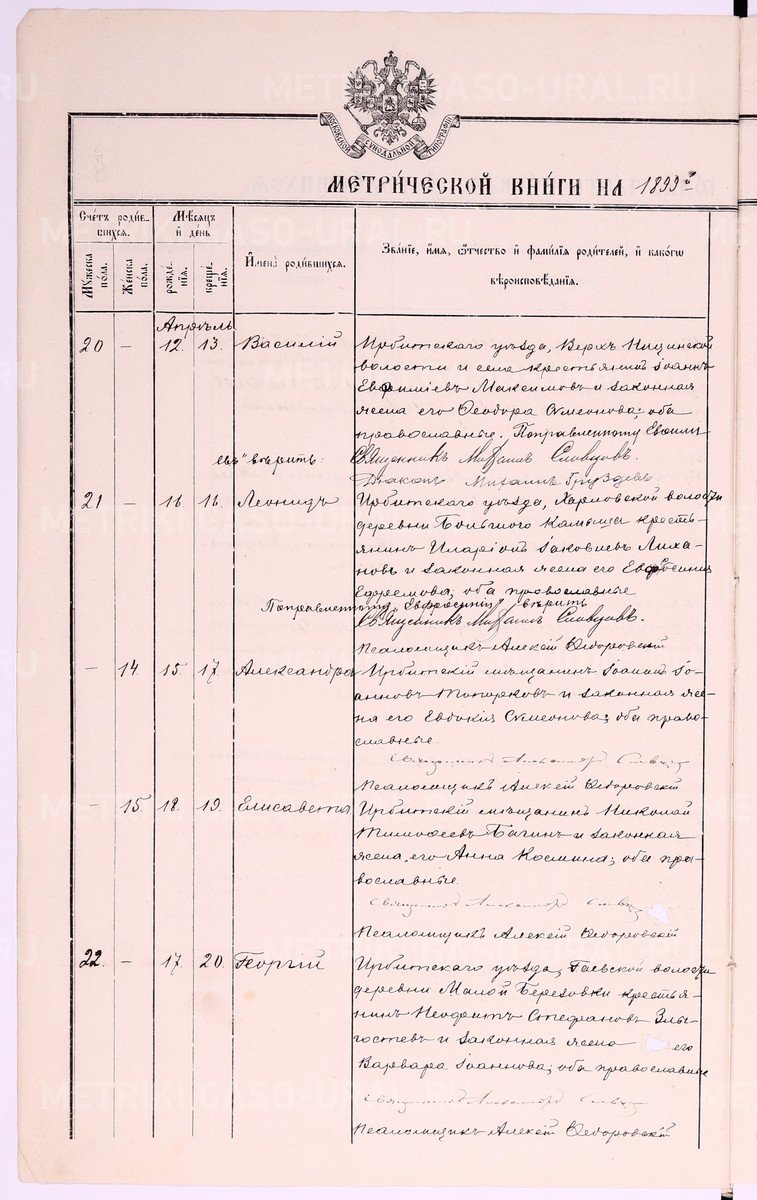 МОСКОВСКОЙ СУНОДАЛЬНОЙ ТИПОГРАФІИ
МЕТРИЧЕСКОЙ КНИГИ НА 1899 г.
Счетъ родившихся.
Мужеска пола.
Женска пола.
Мѣсяцъ и день
рожденія.
крещенія.
Имена родившихся.
Званіе, имя, отчество и фамилія родителей, и какого
вѣроисповѣданія.
Апрѣль
20 – 12. 13. Василій Ирбитскаго уѣзда, Верхъ Ницинской
волости и села крестьянинъ Іоаннъ
Евфиміевъ Максимовъ и законная
жена его Ѳеодора Симеонова; оба
православные. Поправленному Евѳими-
евъ" вѣрить: Священникъ Михаилъ Словцовъ.
Діаконъ Михаилъ Груздевъ.
21 – 16 16. Леонидъ Ирбитскаго уѣзда, Харловской волости
деревни Большого Камыша кресть-
янинъ Иларіонъ Іаковлевъ Лиха-
новъ и законная жена его Евфросинія
Ефремова; оба православные
Поправленному „Евфросинія" вѣрить
Священникъ Михаилъ Словцовъ.
Псаломщикъ Алексѣй Ѳедоровскій
– 14. 15. 17. Александра Ирбитскій мѣщанинъ Іоаннъ Іо-
анновъ Топорковъ и законная же-
на его Евдокія Симеонова; оба право-
славные.
Священникъ Александръ
Псаломщикъ Алексѣй Ѳедоровскій
– 15. 18. 19. Елисавета Ирбитскій мѣщанинъ Николай
Тимоѳеевъ Багинъ и законная
жена его Анна Космина; оба пра-
вославные.
Священникъ Александръ
Псаломщикъ Алексѣй Ѳедоровскій
22. – 17. 20. Георгій Ирбитскаго уѣзда, Гаевской волости
деревни Малой Березовки крестья-
нинъ Неофитъ Стефановъ Злы-
гостевъ и законная жена его
Варвара Іоаннова; оба православные
Священникъ Александръ
Псаломщикъ Алексѣй Ѳедоровскій
METRIKI.GASO-URAL.RU